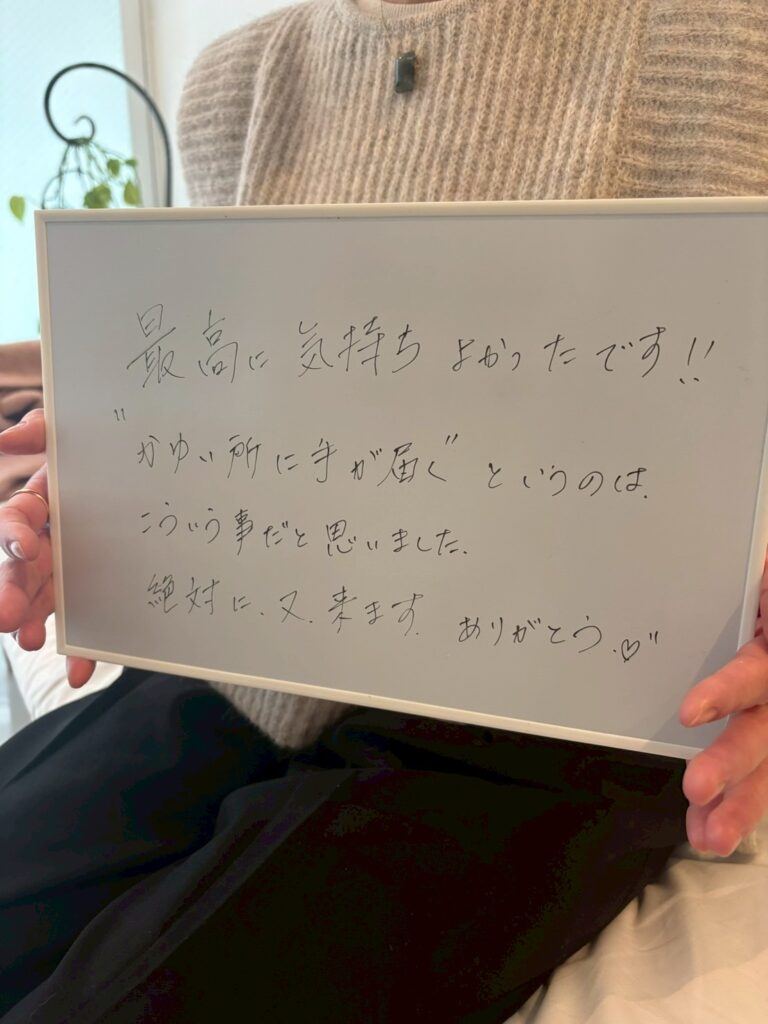 最高に 気持ち よかったです!!
"かゆい所に手が届く" というのは.
こういう事だと思いました.
絶対に.又.来ます. ありがとう.♡"